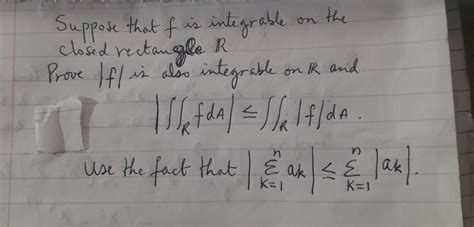 Suppose that f is integrable on the
closed rectangle R
Prove |f| is also integrable on R and
|∬_R f dA| ≤ ∬_R |f| dA .
Use the fact that |∑_{k=1}^{n} a_k| ≤ ∑_{k=1}^{n} |a_k|.